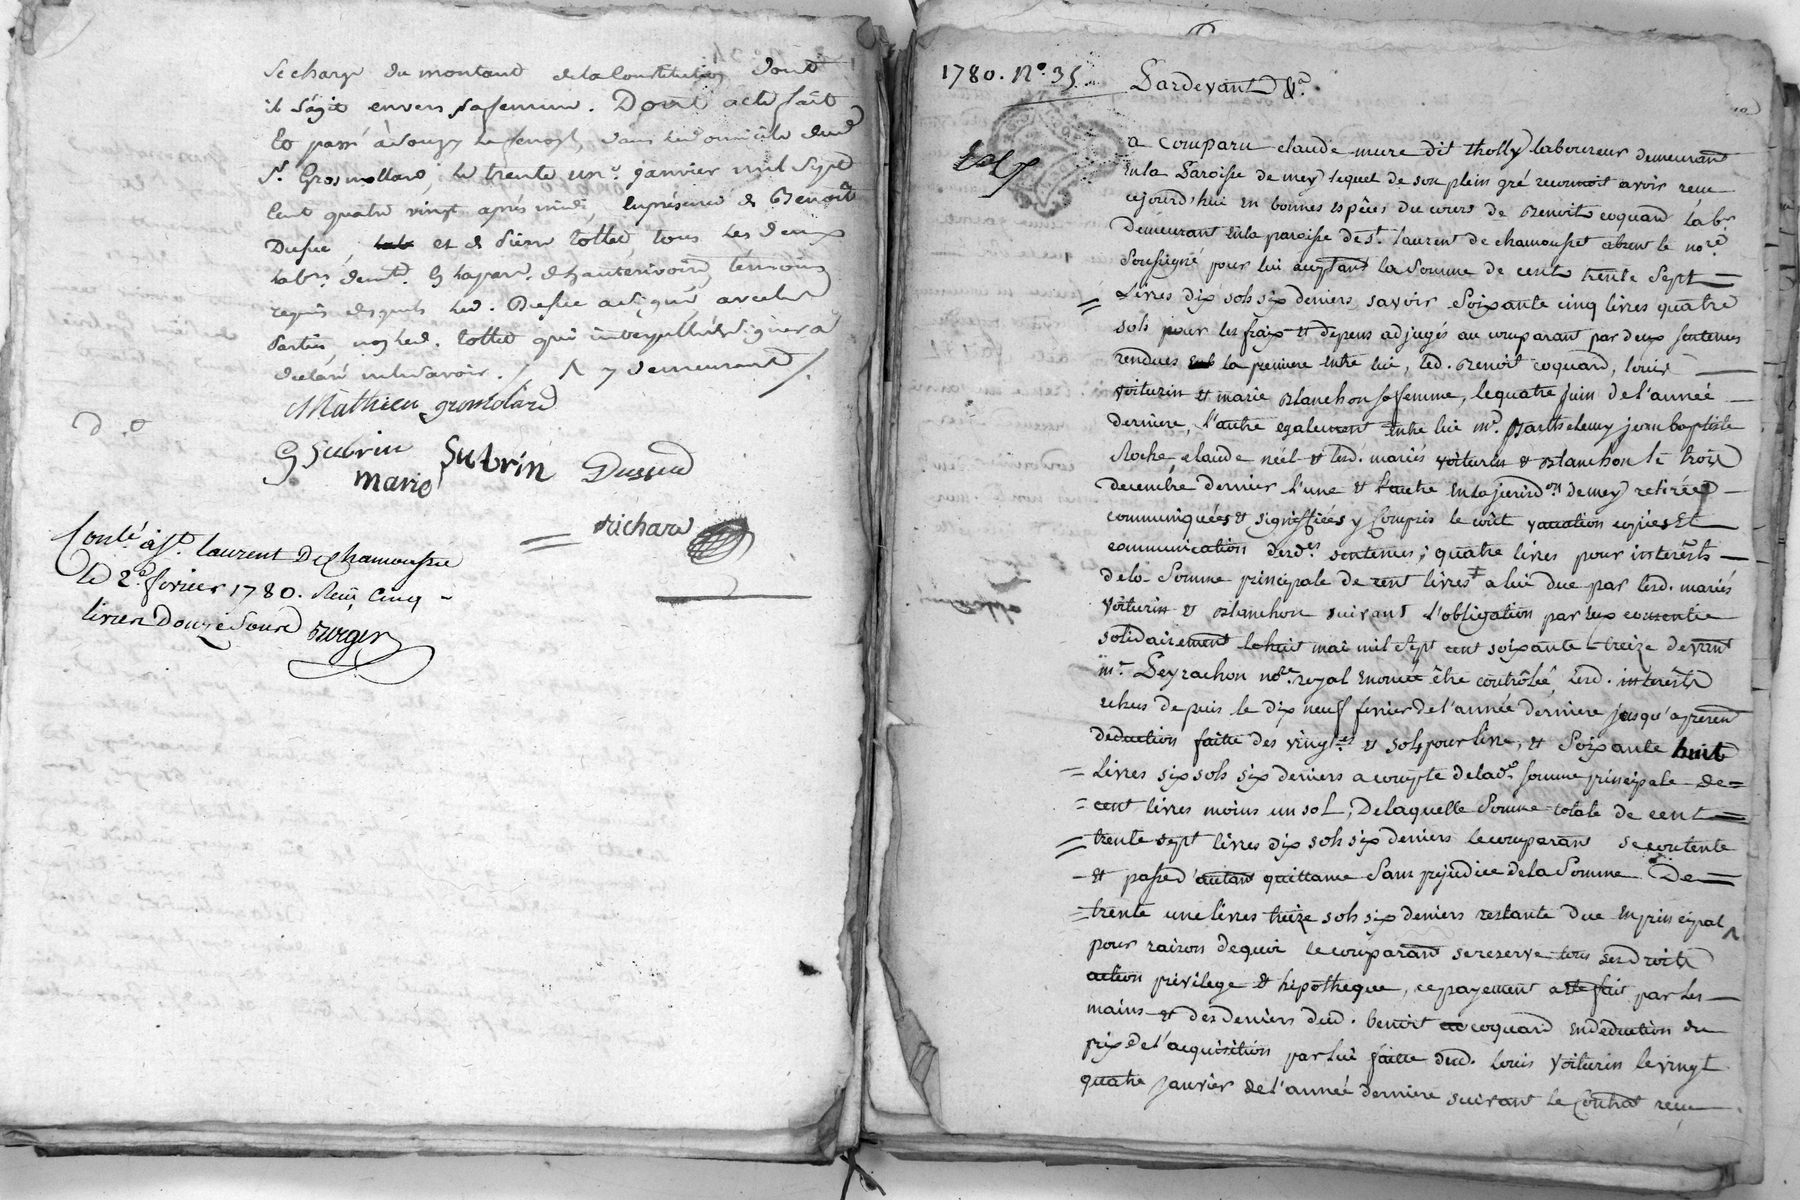 se charge du montant de la Constitution dont
il s'agit envers sa femme. Dont acte fait
et passé à dans le domicile dud.
Sr. Grosmollard, le trente un. janvier mil sept
cent quatre vingt après midi, en présence de Benoit
Dusuc, et de Pierre tous les deux
lab.rs demt. en la par. d'hauterivoire, témoins
requis desquels led. Dusuc a signé avec les
parties, non led. qui interpellé de signer a
déclaré ne le savoir.
Mathieu grosmolard
G Subrin Subrin Dussud
marie
richard
Conlé à St. laurent De Chamousset
le 2e. fevrier 1780. Reçu Cinq
livres Douze Sous
1780. No. 35. Pardevant &a.
a comparu claude mure dit tholly laboureur demeurant
en la Paroisse de mey lequel de son plein gré reconnoit avoir reçu
cejourd'hui en bonnes espêces du cours de Benoit coquard lab.r
Demeurant en la paroisse de St. laurent de chamousset absent le no.re
soussigné pour lui aceptant la somme de cent trente sept
Livres dix sols six deniers savoir soixante cinq livres quatre
sols pour les fraix et depens adjugés au comparant par deux sentences
rendues la premiere entre lui, led. Benoit coquard, louis
voiturin et marie Blanchon sa femme, le quatre juin de l'année
derniere, l'autre egalement entre lui me. Barthelemy jean baptiste
Roche, claude néel et lesd. mariés voiturin et Blanchon le trois
decembre dernier l'une et l'autre en la jurisd.on de mey retirées
communiquées et signiffiées y compris le coût vacation copies Et
communication desd.es sentences; quatre livres pour interêsts
de la Somme principale de cent livres a lui due par lesd. mariés
voiturin et Blanchon suivant l'obligation par eux consentie
solidairement le huit mai mil sept cent soixante treize devant
me. Peyrachon no.re royal enoncée être contrôlée, lesd. intérêsts
echus depuis le dix neuf fevrier de l'année derniere jusqu'apresent
deduction faitte des vingt.es et sols pour livre, et soixante huit
Livres six sols six deniers a compte de lad.e somme principale de
cent livres moins un sol, De laquelle Somme totale de cent
trente sept livres dix sols six deniers le comparant se contente
et passe d'autant quittance Sans préjudice de la Somme De
trente une livres treize sols six deniers restante due en principal
pour raison de quoi le comparant se reserve tous ses droits
action privilege et hipotheque, ce payement a été fait par les
mains et des deniers dud. benoit coquard en deduction du
prix de l'acquisition par lui faitte dud. louis voiturin le vingt
quatre janvier de l'année derniere suivant le Contrat reçu